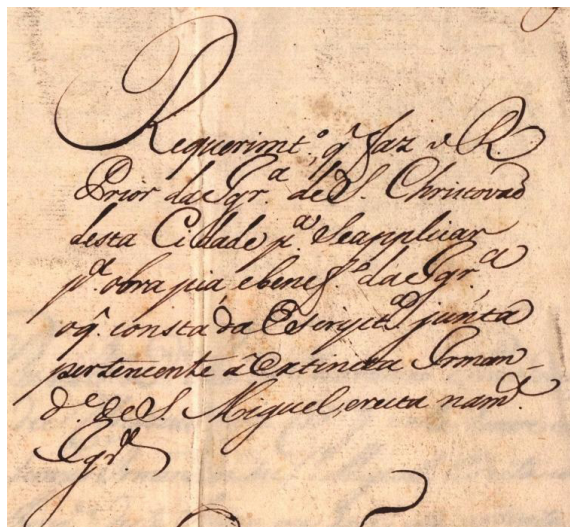 Requerimt.º, q̃ faz o R.
Prior da Igr.ª de S. Christovaõ
desta Cidade p.ª Se applicar
p.ª obra pia, e benef.º da Igr.ª
o q̃. consta da Escript.ª junta
pertencente á Extincta Irman-
d.e de S. Miguel, erecta na m.ª
Igr.ª